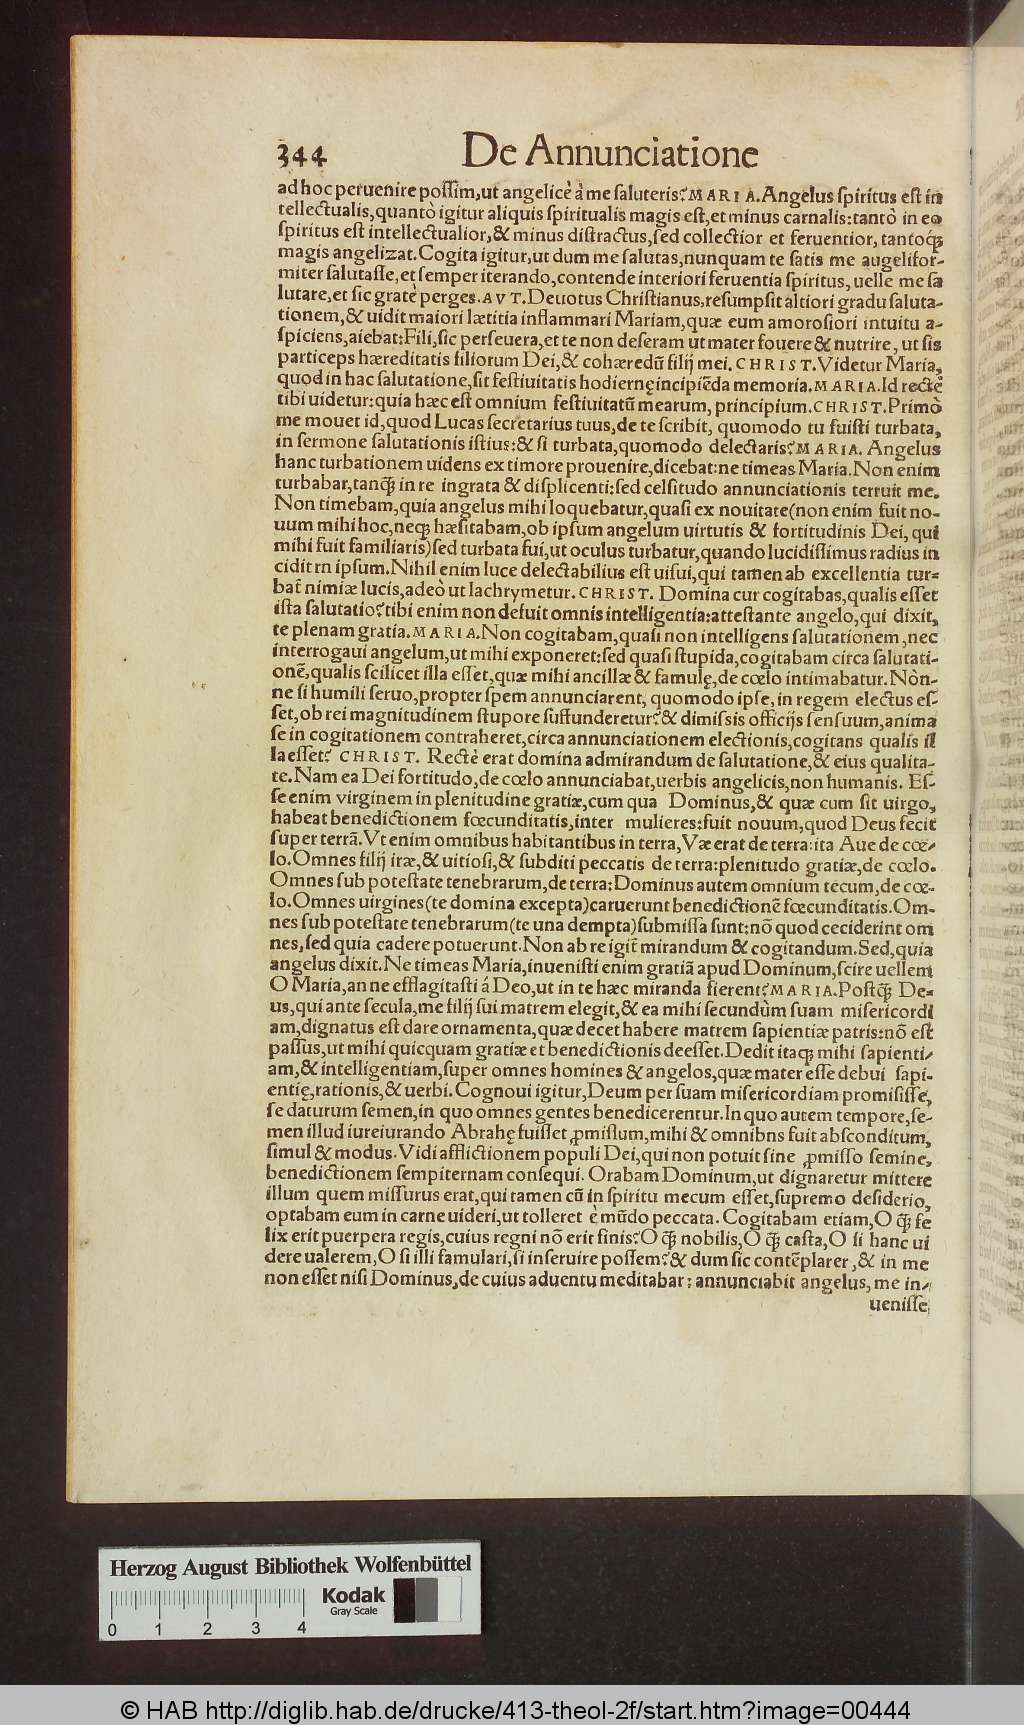 344 De Annunciatione
ad hoc peruenire possim, ut angelicè à me saluteris? MARIA. Angelus spiritus est in
tellectualis, quantò igitur aliquis spiritualis magis est, et minus carnalis: tantò in eo
spiritus est intellectualior, & minus distractus, sed collectior et feruentior, tantoq́;
magis angelizat. Cogita igitur, ut dum me salutas, nunquam te satis me augelifor-
miter salutasse, et semper iterando, contende interiori feruentia spiritus, uelle me sa
lutare, et sic gratè perges. AVT. Deuotus Christianus, resumpsit altiori gradu saluta-
tionem, & uidit maiori lætitia inflammari Mariam, quæ eum amorosiori intuitu a-
spiciens, aiebat: Fili, sic perseuera, et te non deseram ut mater fouere & nutrire, ut sis
particeps hæreditatis filiorum Dei, & cohæredũ filij mei. CHRIST. Videtur Maria,
quod in hac salutatione, sit festiuitatis hodiernę incipiẽda memoria. MARIA. Id rectè
tibi uidetur: quia hæc est omnium festiuitatũ mearum, principium. CHRIST. Primò
me mouet id, quod Lucas secretarius tuus, de te scribit, quomodo tu fuisti turbata,
in sermone salutationis istius: & si turbata, quomodo delectaris? MARIA. Angelus
hanc turbationem uidens ex timore prouenire, dicebat: ne timeas Maria. Non enim
turbabar, tanq̃; in re ingrata & displicenti: sed celsitudo annunciationis terruit me.
Non timebam, quia angelus mihi loquebatur, quasi ex nouitate (non enim fuit no-
uum mihi hoc, neq; hæsitabam, ob ipsum angelum uirtutis & fortitudinis Dei, qui
mihi fuit familiaris) sed turbata fui, ut oculus turbatur, quando lucidissimus radius in
cidit rn ipsum. Nihil enim luce delectabilius est uisui, qui tamen ab excellentia tur-
bat̃ nimiæ lucis, adeò ut lachrymetur. CHRIST. Domina cur cogitabas, qualis esset
ista salutatio? tibi enim non defuit omnis intelligentia: attestante angelo, qui dixit,
te plenam gratia. MARIA. Non cogitabam, quasi non intelligens salutationem, nec
interrogaui angelum, ut mihi exponeret: sed quasi stupida, cogitabam circa salutati-
onẽ, qualis scilicet illa esset, quæ mihi ancillæ & famulę, de cœlo intimabatur. Nòn-
ne si humili seruo, propter spem annunciarent, quomodo ipse, in regem electus es-
set, ob rei magnitudinem stupore suffunderetur? & dimissis officijs sensuum, anima
se in cogitationem contraheret, circa annunciationem electionis, cogitans qualis il
la esset? CHRIST. Rectè erat domina admirandum de salutatione, & eius qualita-
te. Nam ea Dei fortitudo, de cœlo annunciabat, uerbis angelicis, non humanis. Es-
se enim virginem in plenitudine gratiæ, cum qua Dominus, & quæ cum sit uirgo,
habeat benedictionem fœcunditatis, inter mulieres: fuit nouum, quod Deus fecit
super terrã. Vt enim omnibus habitantibus in terra, Væ erat de terra: ita Aue de cœ-
lo. Omnes filij iræ, & uitiosi, & subditi peccatis de terra: plenitudo gratiæ, de cœlo.
Omnes sub potestate tenebrarum, de terra: Dominus autem omnium tecum, de cœ-
lo. Omnes uirgines (te domina excepta) caruerunt benedictionẽ fœcunditatis. Om-
nes sub potestate tenebrarum (te una dempta) submissa sunt: nõ quod ceciderint om
nes, sed quia cadere potuerunt. Non ab re igit̃ mirandum & cogitandum. Sed, quia
angelus dixit. Ne timeas Maria, inuenisti enim gratiã apud Dominum, scire uellem
O Maria, an ne efflagitasti á Deo, ut in te hæc miranda fierent? MARIA. Postq̃; De-
us, qui ante secula, me filij sui matrem elegit, & ea mihi secundùm suam misericordi
am, dignatus est dare ornamenta, quæ decet habere matrem sapientiæ patris: nõ est
passus, ut mihi quicquam gratiæ et benedictionis deesset. Dedit itaq; mihi sapienti-
am, & intelligentiam, super omnes homines & angelos, quæ mater esse debui sapi-
entię, rationis, & uerbi. Cognoui igitur, Deum per suam misericordiam promisisse,
se daturum semen, in quo omnes gentes benedicerentur. In quo autem tempore, se-
men illud iureiurando Abrahę fuisset ꝓmissum, mihi & omnibns fuit absconditum,
simul & modus. Vidi afflictionem populi Dei, qui non potuit sine ꝓmisso semine,
benedictionem sempiternam consequi. Orabam Dominum, ut dignaretur mittere
illum quem missurus erat, qui tamen cũ in spiritu mecum esset, supremo desiderio,
optabam eum in carne uideri, ut tolleret è mũdo peccata. Cogitabam etiam, O q̃; fe
lix erit puerpera regis, cuius regni nõ erit finis? O q̃; nobilis, O q̃; casta, O si hanc ui
dere ualerem, O si illi famulari, si inseruire possem? & dum sic contẽplarer, & in me
non esset nisi Dominus, de cuius aduentu meditabar: annunciabit angelus, me in-
uenisse,
Herzog August Bibliothek Wolfenbüttel
Kodak
Gray Scale
0 1 2 3 4
© HAB http://diglib.hab.de/drucke/413-theol-2f/start.htm?image=00444